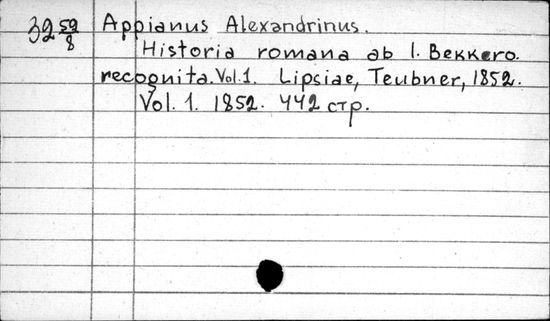 39 59/8 Appianus Alexandrinus.
Historia romana ab I. Bekkero
recognita. Vol. 1. Lipsiae, Teubner, 1852.
Vol. 1. 1852. 442 стр.